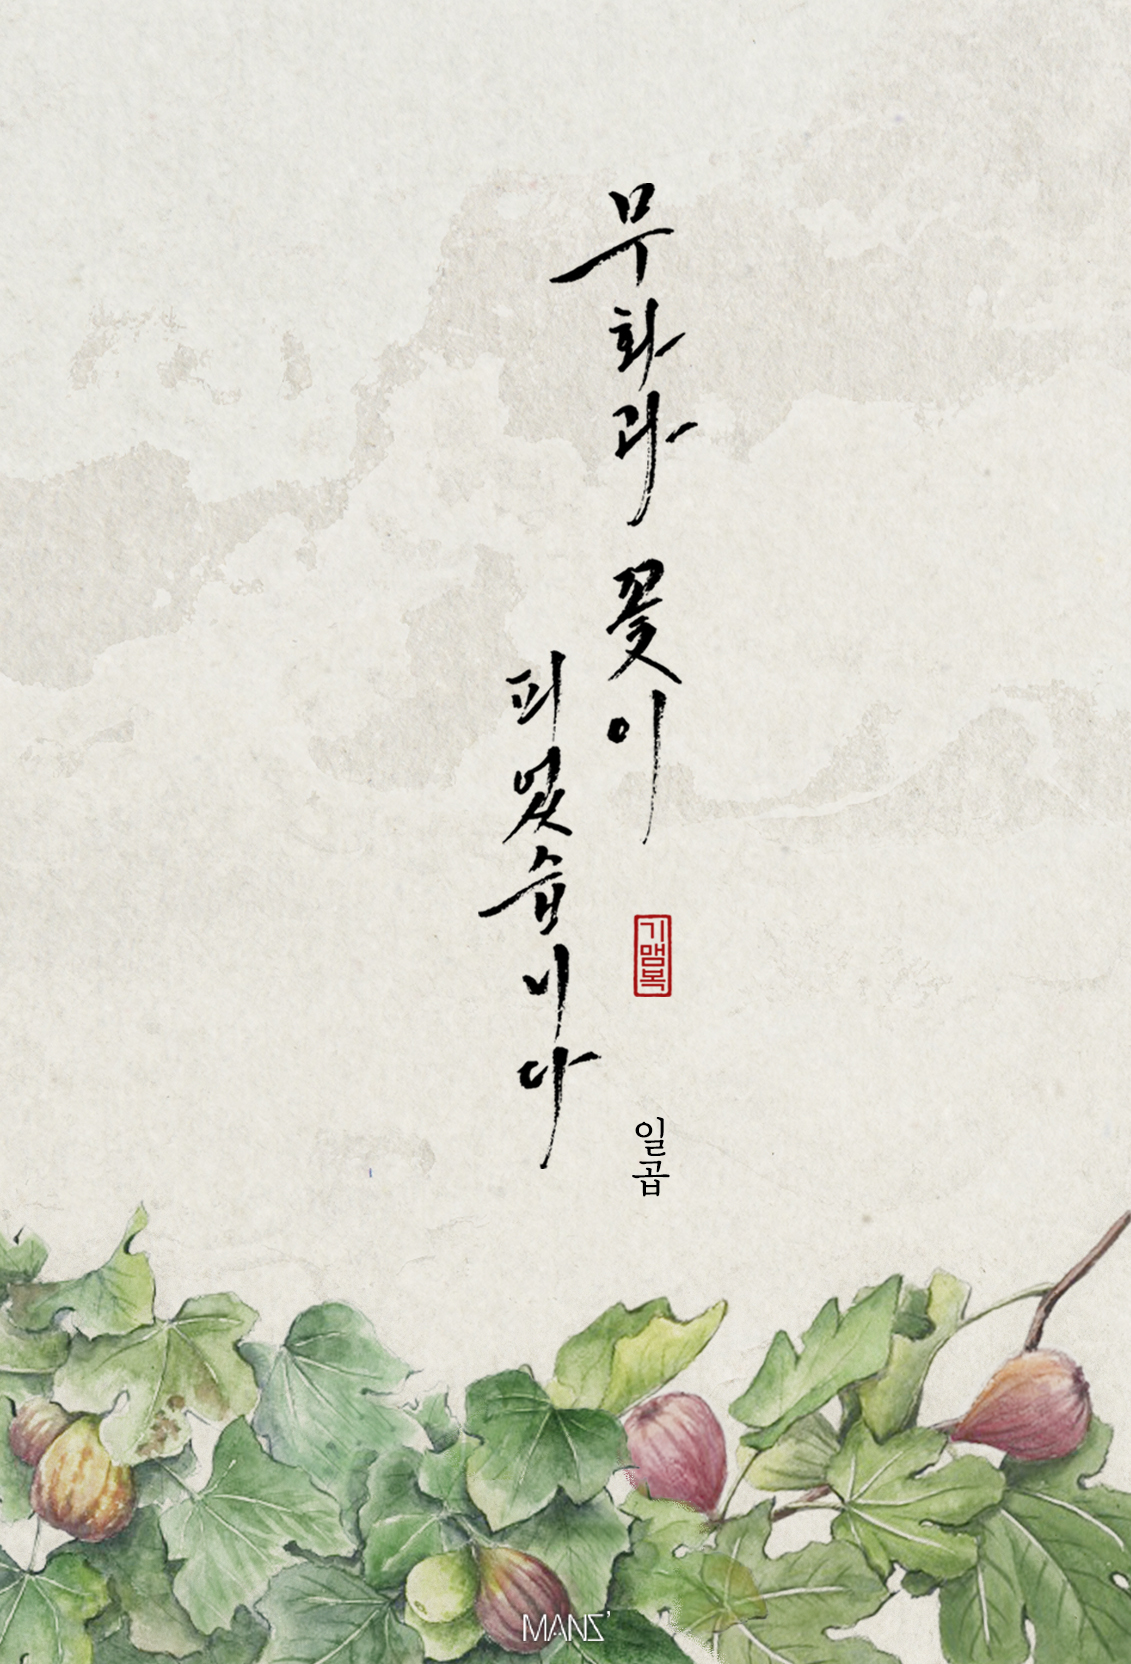 무화과 꽃이
피었습니다
기맴복
일곱
MANZ'